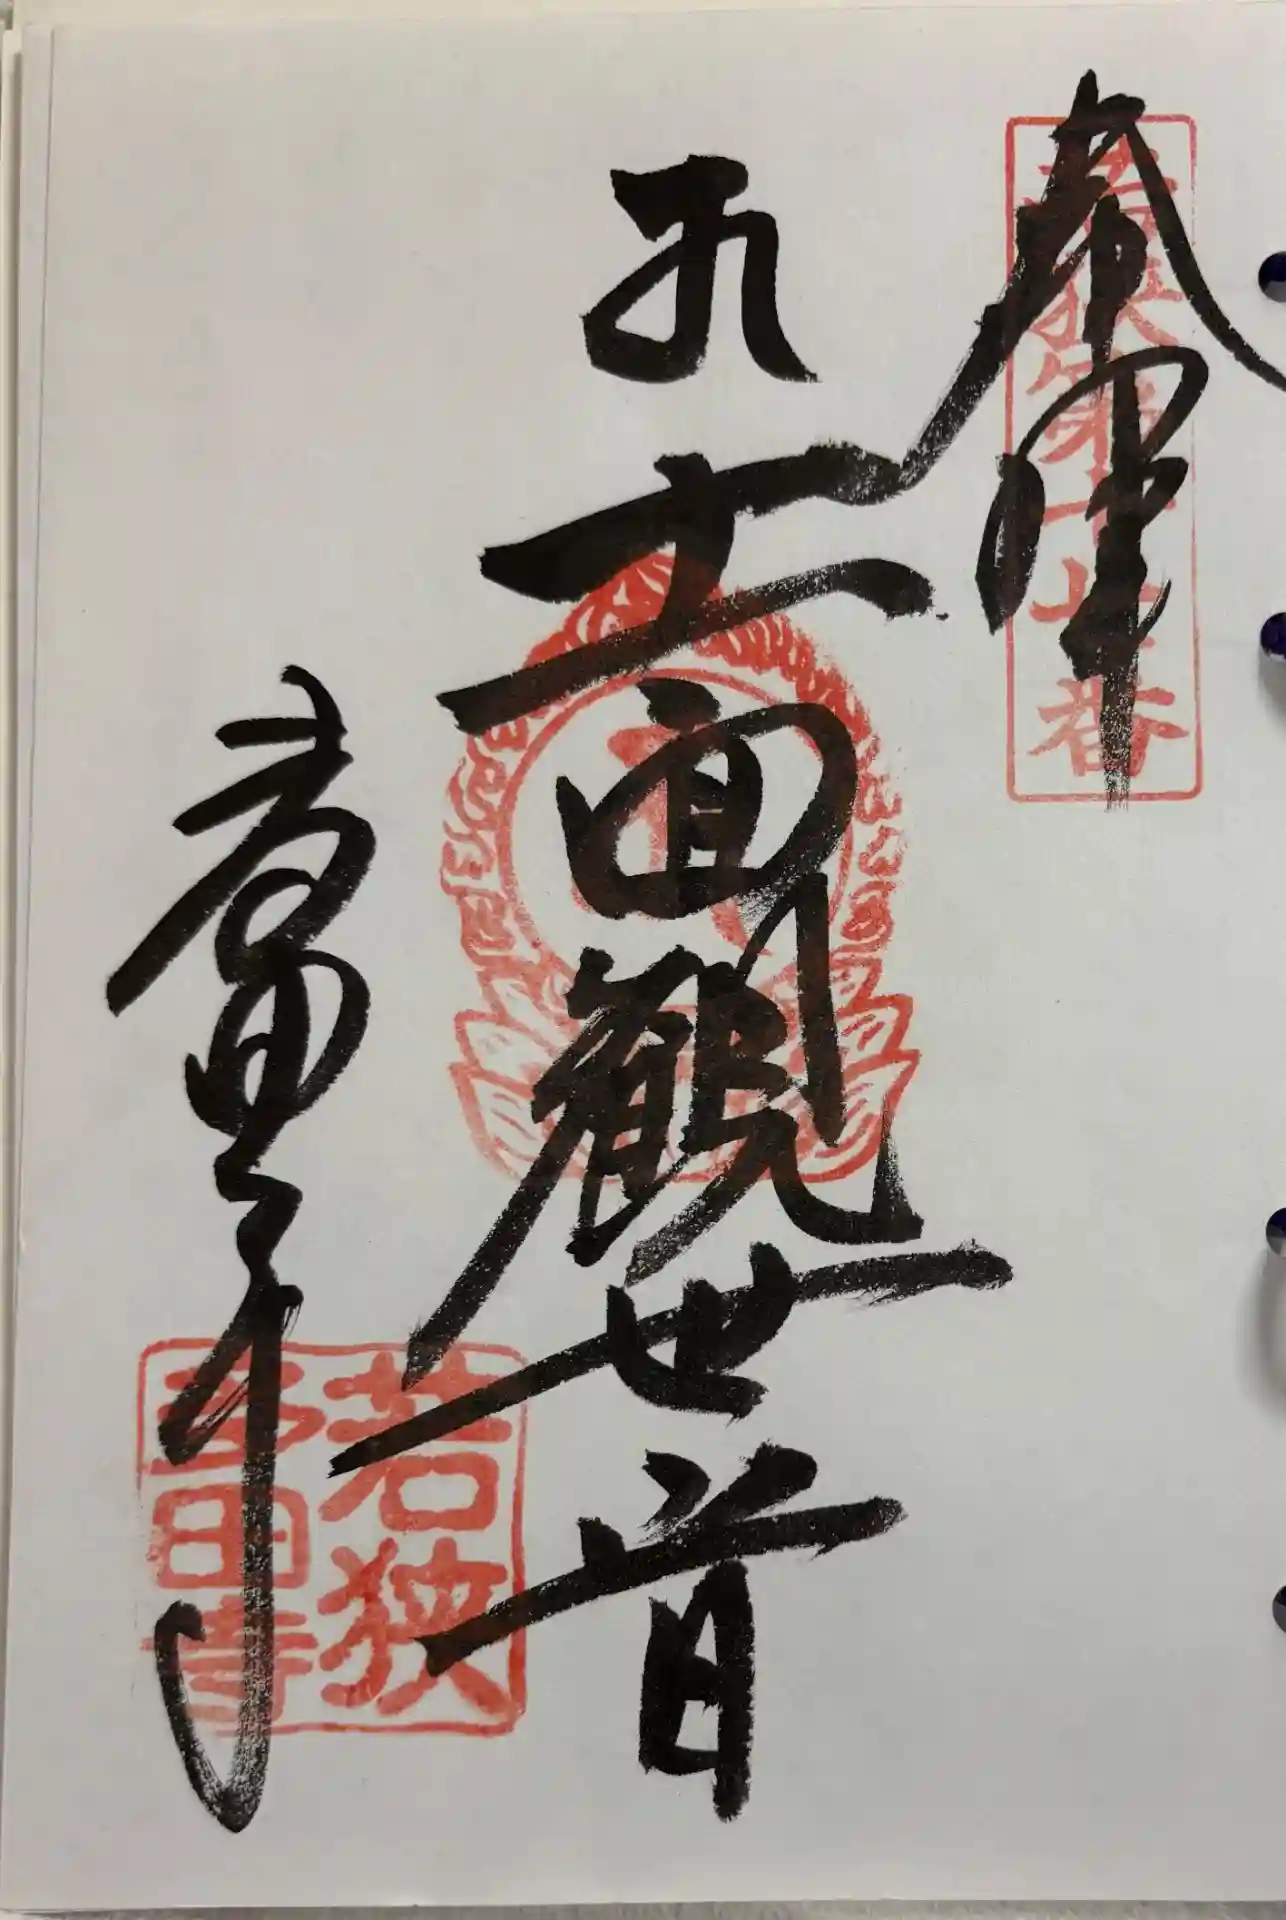 奉拝
若狭第十七番
十一面觀世音
多田寺
若狭
多田寺